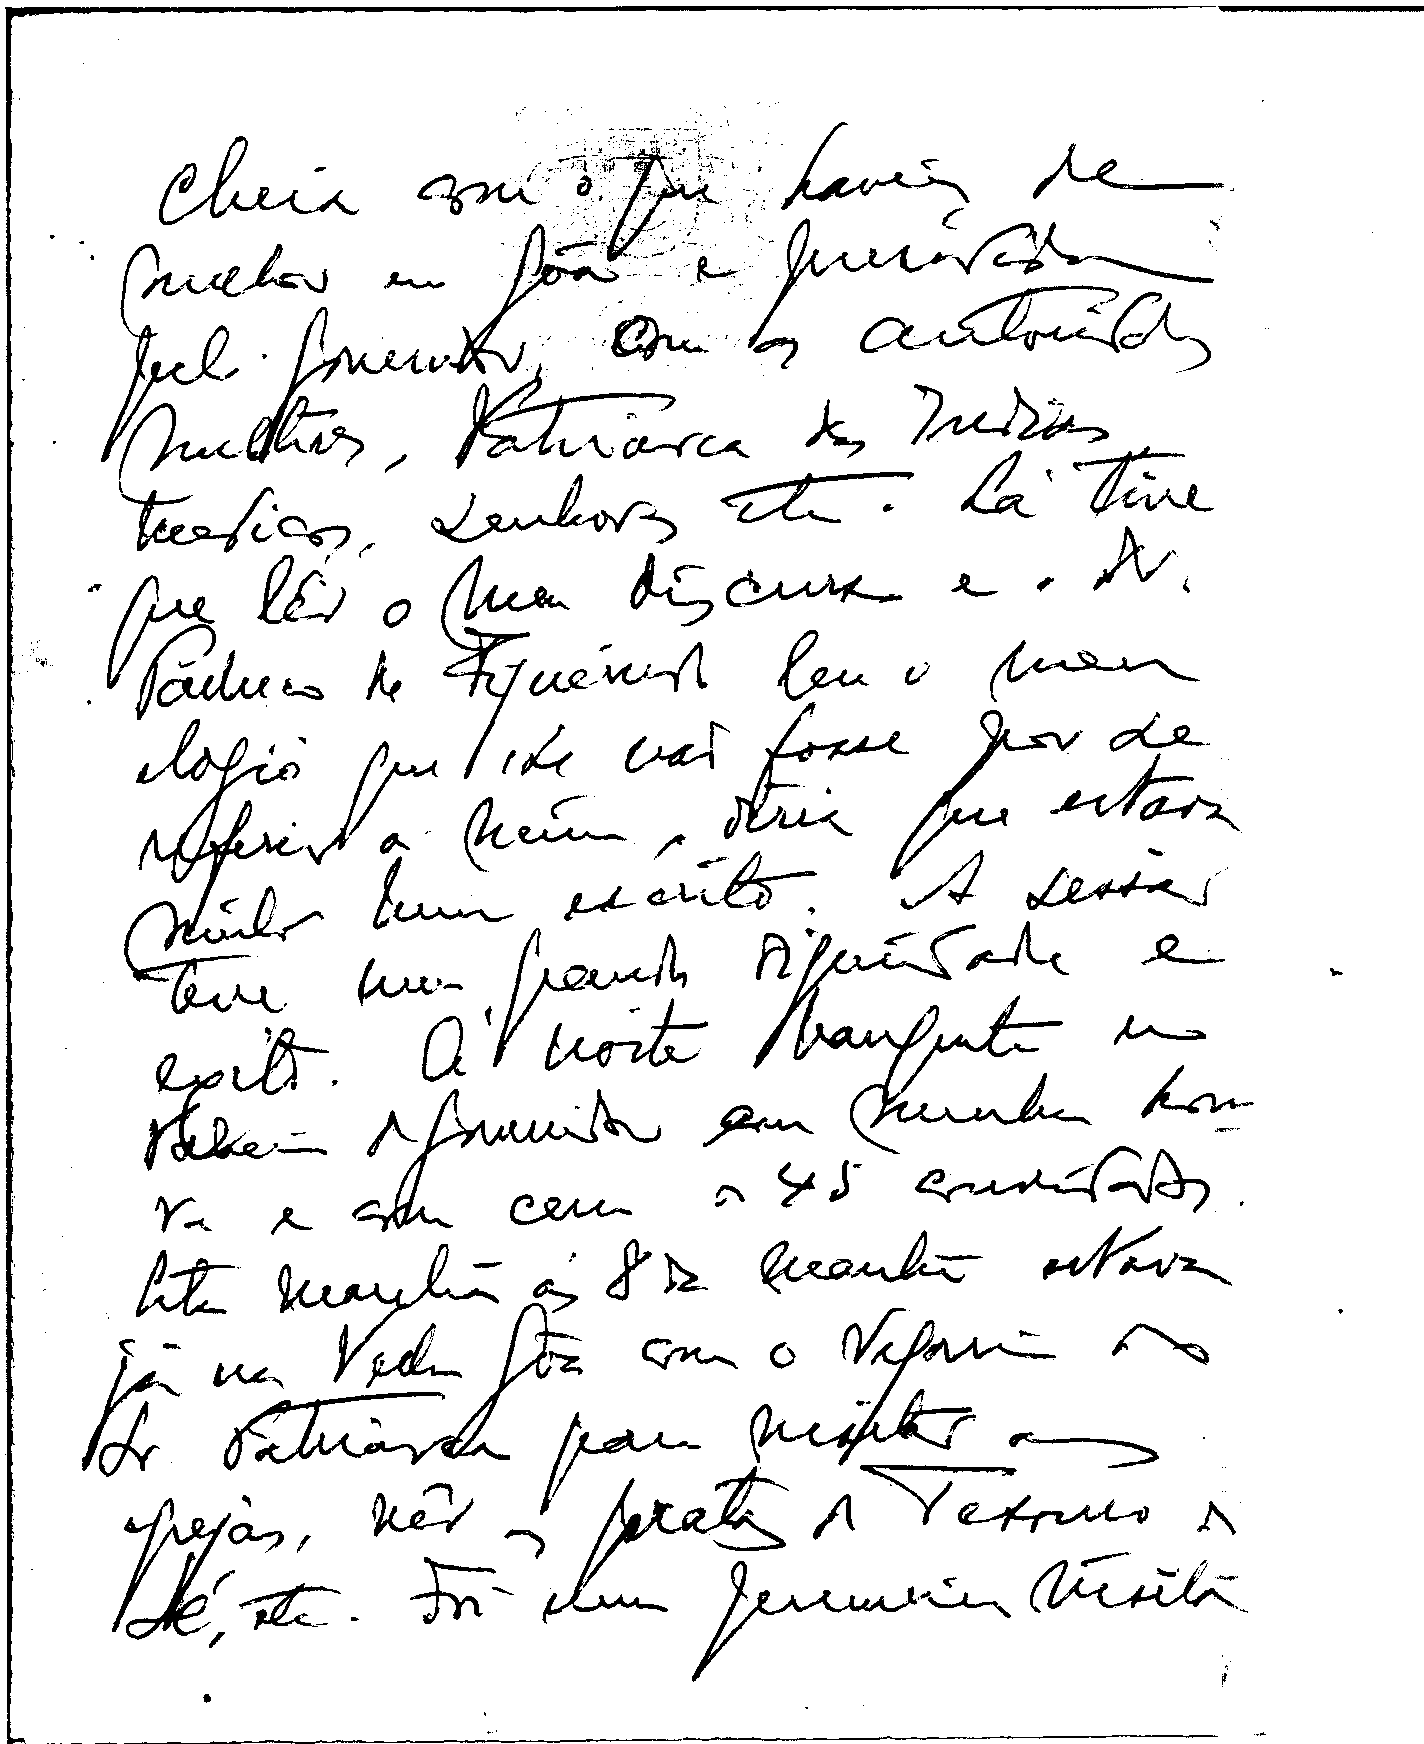 cheia com o que havia de
melhor em Gôa e presidida
pelo Governador, com as autoridades
militares, Patriarca das Indias,
medicos, senhoras etc. Lá tive
que lêr o meu discurso e o Dr.
Pacheco de Figueiredo leu o meu
elogio que se não fosse por se
referir a mim, diria que estava
muito bem escrito. A sessão
teve uma grande dignidade e
exito. Á noite banquete no
Palacio do Governador em minha hon-
ra e com cerca de 45 convidados.
Esta manhã ás 8 da manhã estava
já na Velha Gôa com o Vigario do
Sr Patriarca para visitar as
igrejas, vêr as pratas do Tesouro da
Sé, etc. Foi uma primeira visita